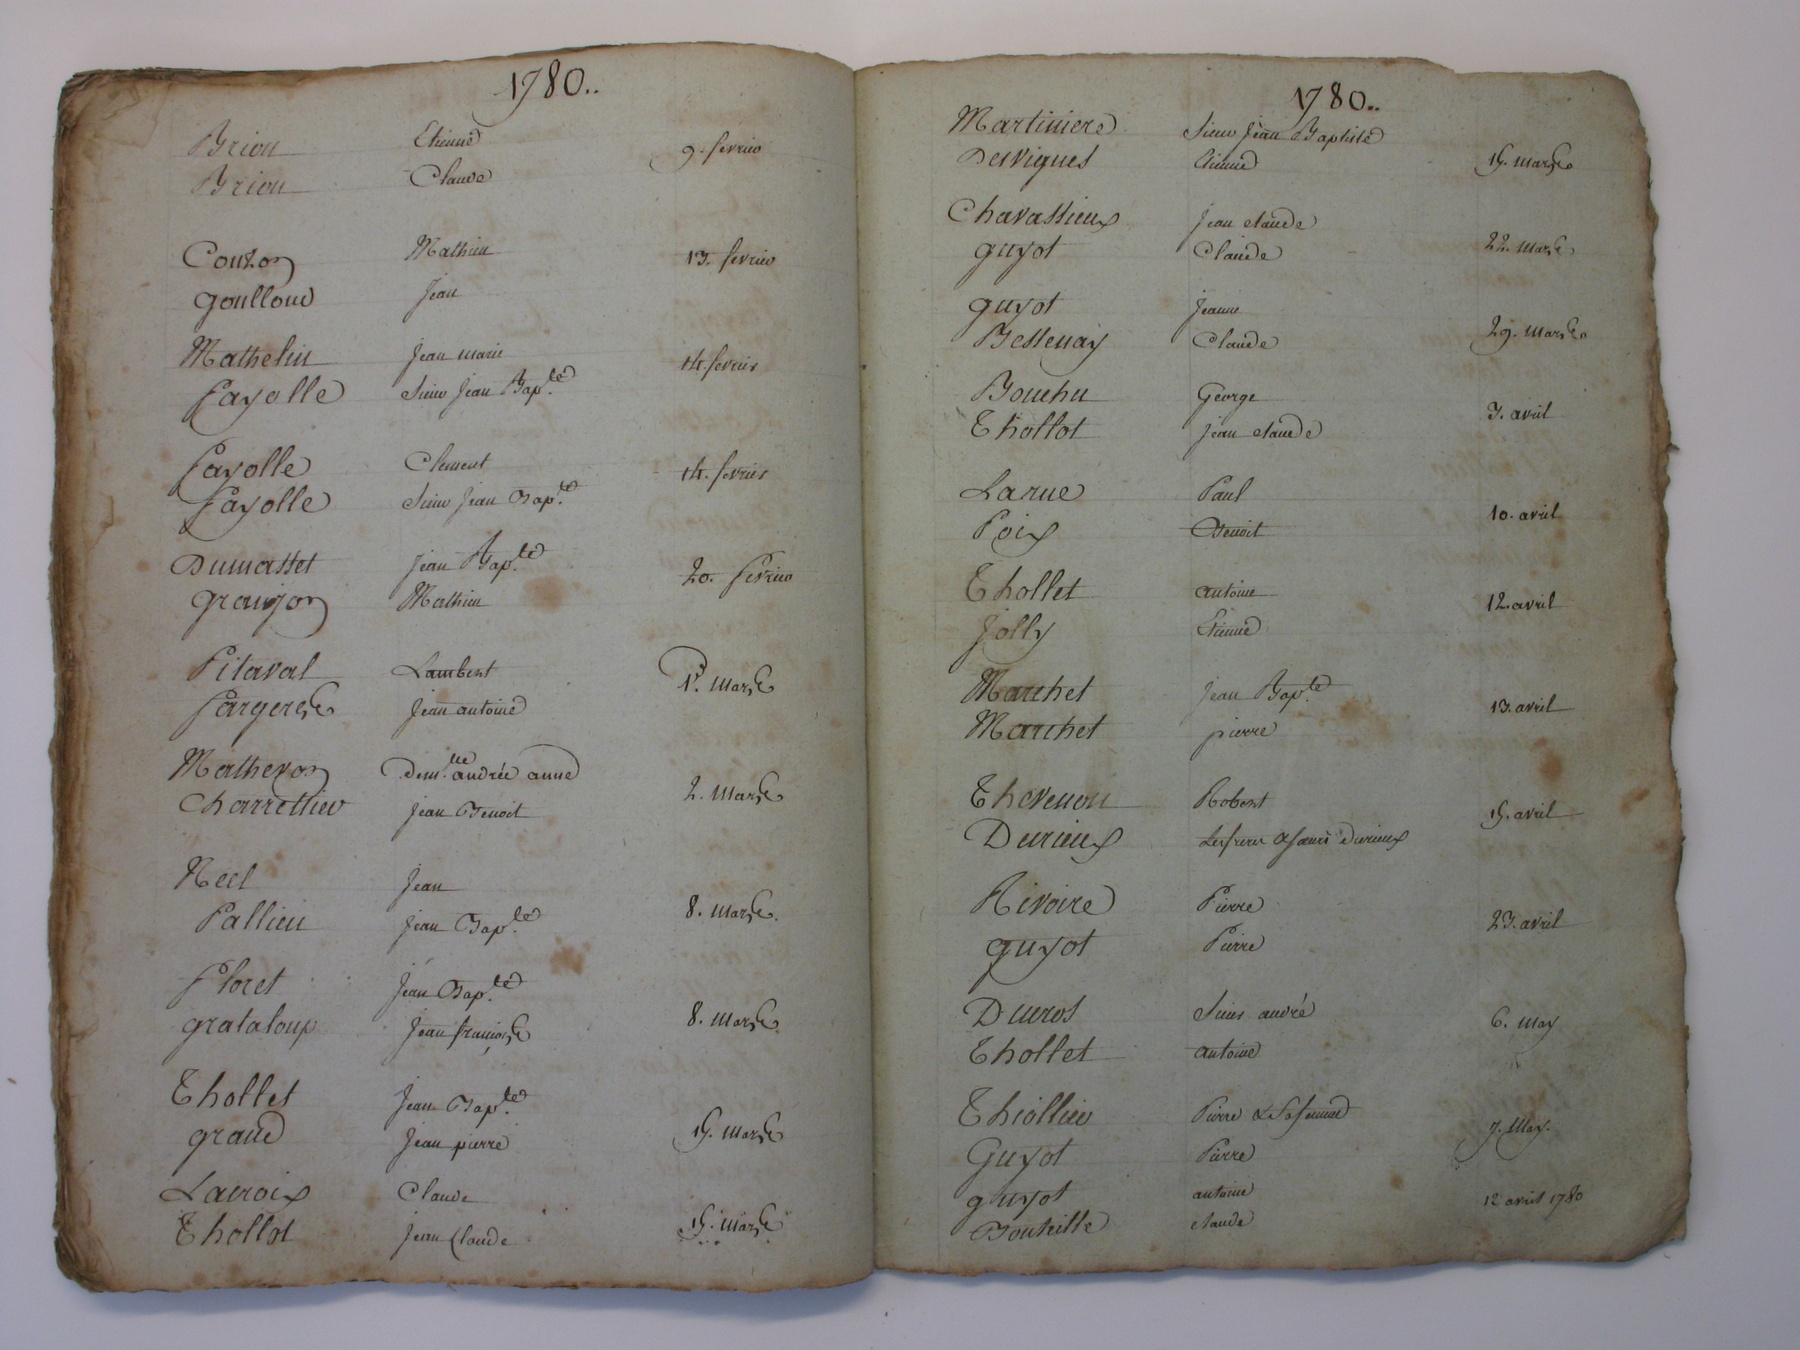 1780..
Brion Etienne
9. fevrier
Brion Claude
Couzon Mathieu 13. fevrier
goulloud Jean
Mathelin Jean marie 14. fevrier
fayolle Sieur Jean Bap.te
fayolle Clement 14. fevrier
fayolle Sieur Jean Bap.te
Dumasset Jean Bap.te 20. fevrier
granjon Mathieu
Pitaval Lambert 1r. Mars
fargere Jean antoine
Matheron Dem.lle andrée anne 2. Mars
Charretier Jean Benoit
Neel Jean 8. Mars
Pallieu Jean Bap.te
floret Jean Bap.te 8. Mars
grataloup Jean françois
Thollet Jean Bap.te 15. Mars
grand Jean pierre
Lacroix Claude 15. Mars
Thollot Jean Claude
1780..
Martiniere Sieur Jean Baptiste
Desvignes Etienne 15. mars
Chavassieux Jean claude 22. Mars
guyot Claude
guyot Jeanne 29. Mars
Bessenay Claude
Bouchu George 3. avril
Thollot Jean claude
Larue Paul 10. avril
Poix Benoit
Thollet antoine 12. avril
Jolly Etienne
Marchet Jean Bap.te 13. avril
Marchet pierre
Thevenon Robert 15. avril
Durieux Les freres & soeurs Durieux
Rivoire Pierre 23. avril
guyot Pierre
Ducros Sieur andré 6. May
Thollet antoine
Thiollier Pierre & Sa femme 7. May.
Guyot Pierre
guyot antoine 12 avril 1780
Bouteille claude